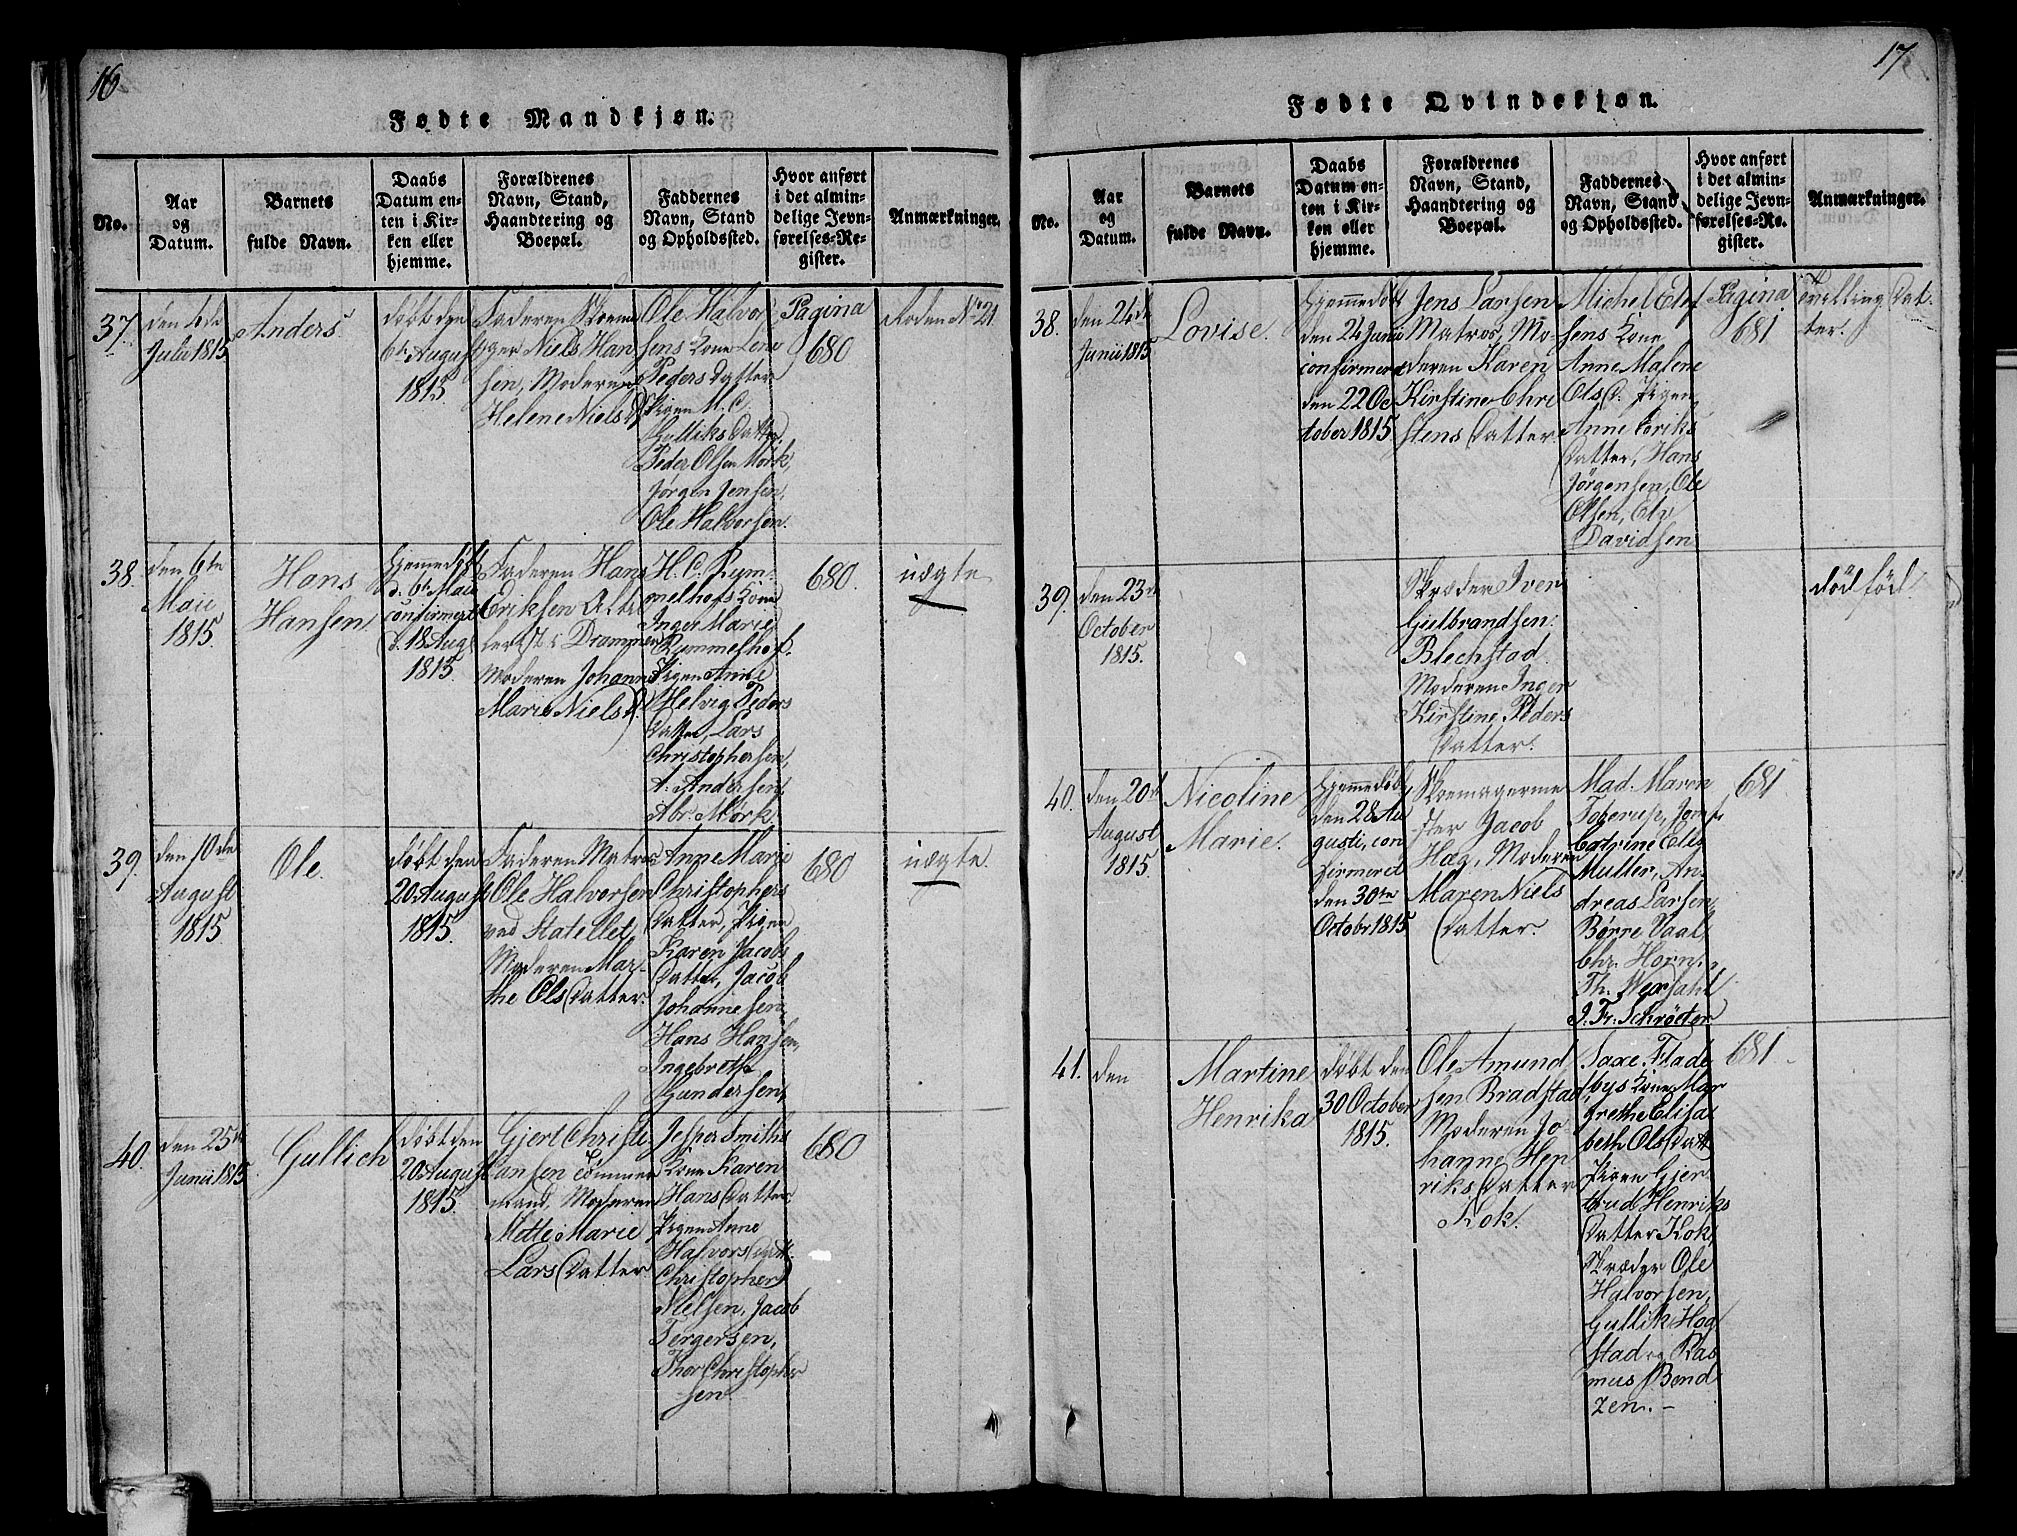 16
Fødte Mandkjøn.
No.
Aar
og
Datum.
Barnets
fulde Navn.
Daabs
Datum en-
ten i Kir-
ken eller
hjemme.
Forældrenes
Navn, Stand,
Haandtering og
Boepæl.
Faddernes
Navn, Stand
og Opholdssted.
Hvor anført
i det almin-
delige Jevn-
førelses-Re-
gister.
Anmærkninger.
37.
den 4de
Julii 1815
Anders.
døbt den
6te August
1815.
Faderen Skoma
ger Niels Han
sen, Moderen
Helene Niels D.
Ole Halvor
sens Kone Lene
Peders Datter
Pigen M. C.
Gulliks Datter
Peder Olsen Mörk,
Jørgen Jensen,
Ole Halvorsen.
Pagina
680
No 21
38.
den 6te
Maii
1815.
Hans
Hansen.
Hjemmedøbt
d. 6te Maii
confirmert
d. 18 Aug
1815.
Faderen Hans
Eriksen
Drammen
Moderen Johanne
Marie Niels D.
H. C. Rym-
melhofs Kone
Inger Marie
Rymmelhof.
Pigen Anne
Helvig Peders
Datter, Lars
Christophersen,
A. Andersen,
Abr. Mørk.
680.
uægte
39.
den 10de
August
1815
Ole.
døbt den
20 August
1815.
Faderen Matros
Ole Halvorsen
ved Statellet,
Moderen Mar-
the Ols Datter.
Anne Marie
Christophers
Datter, Pigen
Karen Jacobs
Datter, Jacob
Johannesen,
Hans Hansen,
Ingebreth
Gundersen,
680
uægte.
40.
den 25de
Junii 1815.
Gullich
døbt den
20 August
1815.
Gjert Christi
ansen Tömmer
mand, Moderen
Mette Marie
Lars Datter
Jesper Smiths
Kone Karen
Hans Datter
Pigen Anne
Halvors Datt.
Christopher
Nielsen, Jacob
Tergersen,
Thor Christopher
sen
680
17
Fødte Qvindekjøn.
No.
Aar
og
Datum.
Barnets
fulde Navn.
Daabs
Datum en-
ten i Kir-
ken eller
hjemme.
Forældrenes
Navn, Stand,
Haandtering og
Boepæl.
Faddernes
Navn, Stand
og Opholdssted.
Hvor anført
i det almin-
delige Jevn-
førelses-Re-
gister.
Anmærkninger.
38.
den 24de
Junii 1815
Lovise.
Hjemmedøbt
den 24 Junii
confirmeret
den 22 Oc
tober 1815
Jens Larsen
Matros, Mo-
deren Karen
Kirstine Chri
stens Datter.
Michel Elef
sens Kone
Anne Malene
Ols D. Pigen
Anne Eeriks
Datter, Hans
Jörgensen, Ole
Olsen, Elv
Davidsen
Pagina
681
Tvilling Dat
ter.
39.
den 23de
October
1815.
Skræder Iver
Gulbrandsen
Blechstad
Moderen Inger
Kirstine Peders
Datter.
død fød.
40.
den 20de
August
1815.
Nicoline
Marie.
Hjemmedøbt
den 28 Au
gusti, con
firmeret
den 30te
Octobr 1815
Skoemagerme
ster Jacob
Hag, Moderen
Maren Niels
Datter.
Mad. Maren
Toterup, Jomf.
Catrine Elis
Muller, An
dreas Larsen,
Børre Vaal,
Chr. Horn,
Th.
J. Fr. Schröeter
681
41.
den
Martine
Henrika
døbt den
30 October
1815.
Ole Amund
sen Bradstad
Moderen Jo-
hanne Hen
riks Datter
Kok.
Saxe Flade
bys Kone Mar
grethe Elisa
beth Ols Datt
Pigen Gjer
trud Henriks
Datter Kok,
Skræder Ole
Halvorsen,
Gullik Hog
stad og Ras
mus Bend
zen.-
681